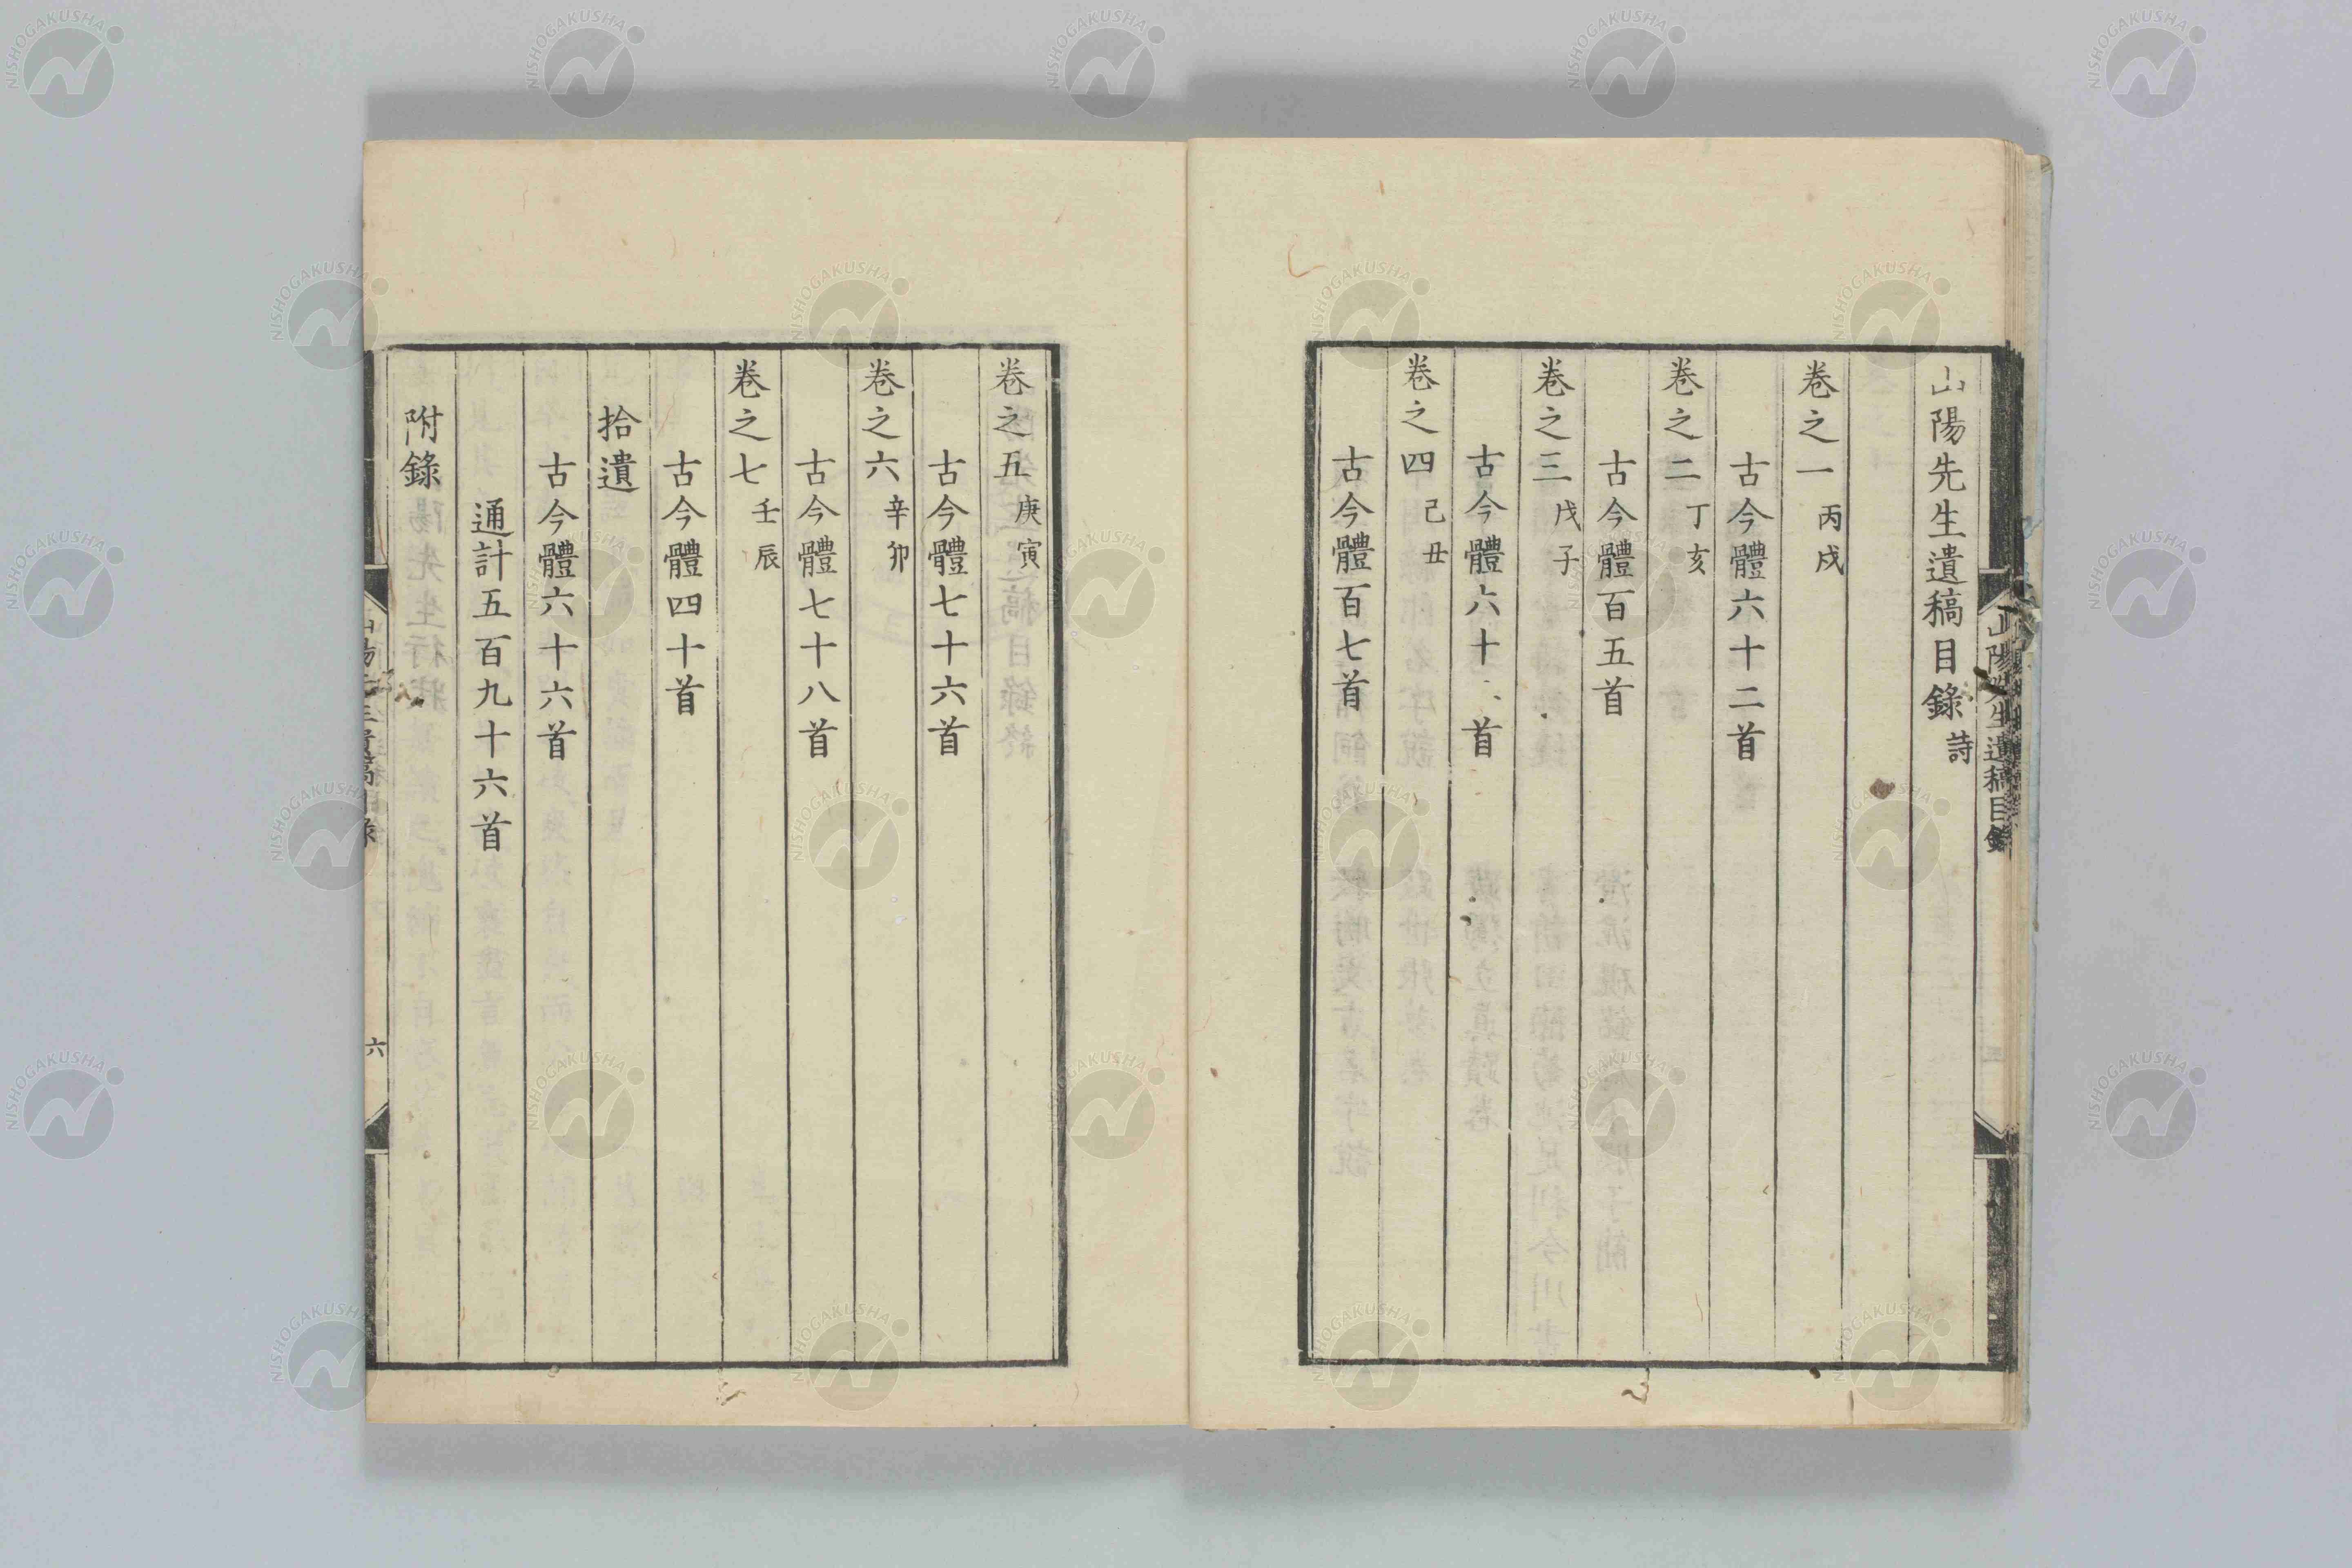 山陽先生遺稿目錄
山陽先生遺稿目錄 詩
卷之一 丙戌
古今體六十二首
卷之二 丁亥
古今體百五首
卷之三 戊子
古今體六十首
卷之四 己丑
古今體百七首
卷之五 庚寅
古今體七十六首
卷之六 辛卯
古今體七十八首
卷之七 壬辰
古今體四十首
拾遺
古今體六十六首
通計五百九十六首
附錄
六
NISHOGAKUSHA